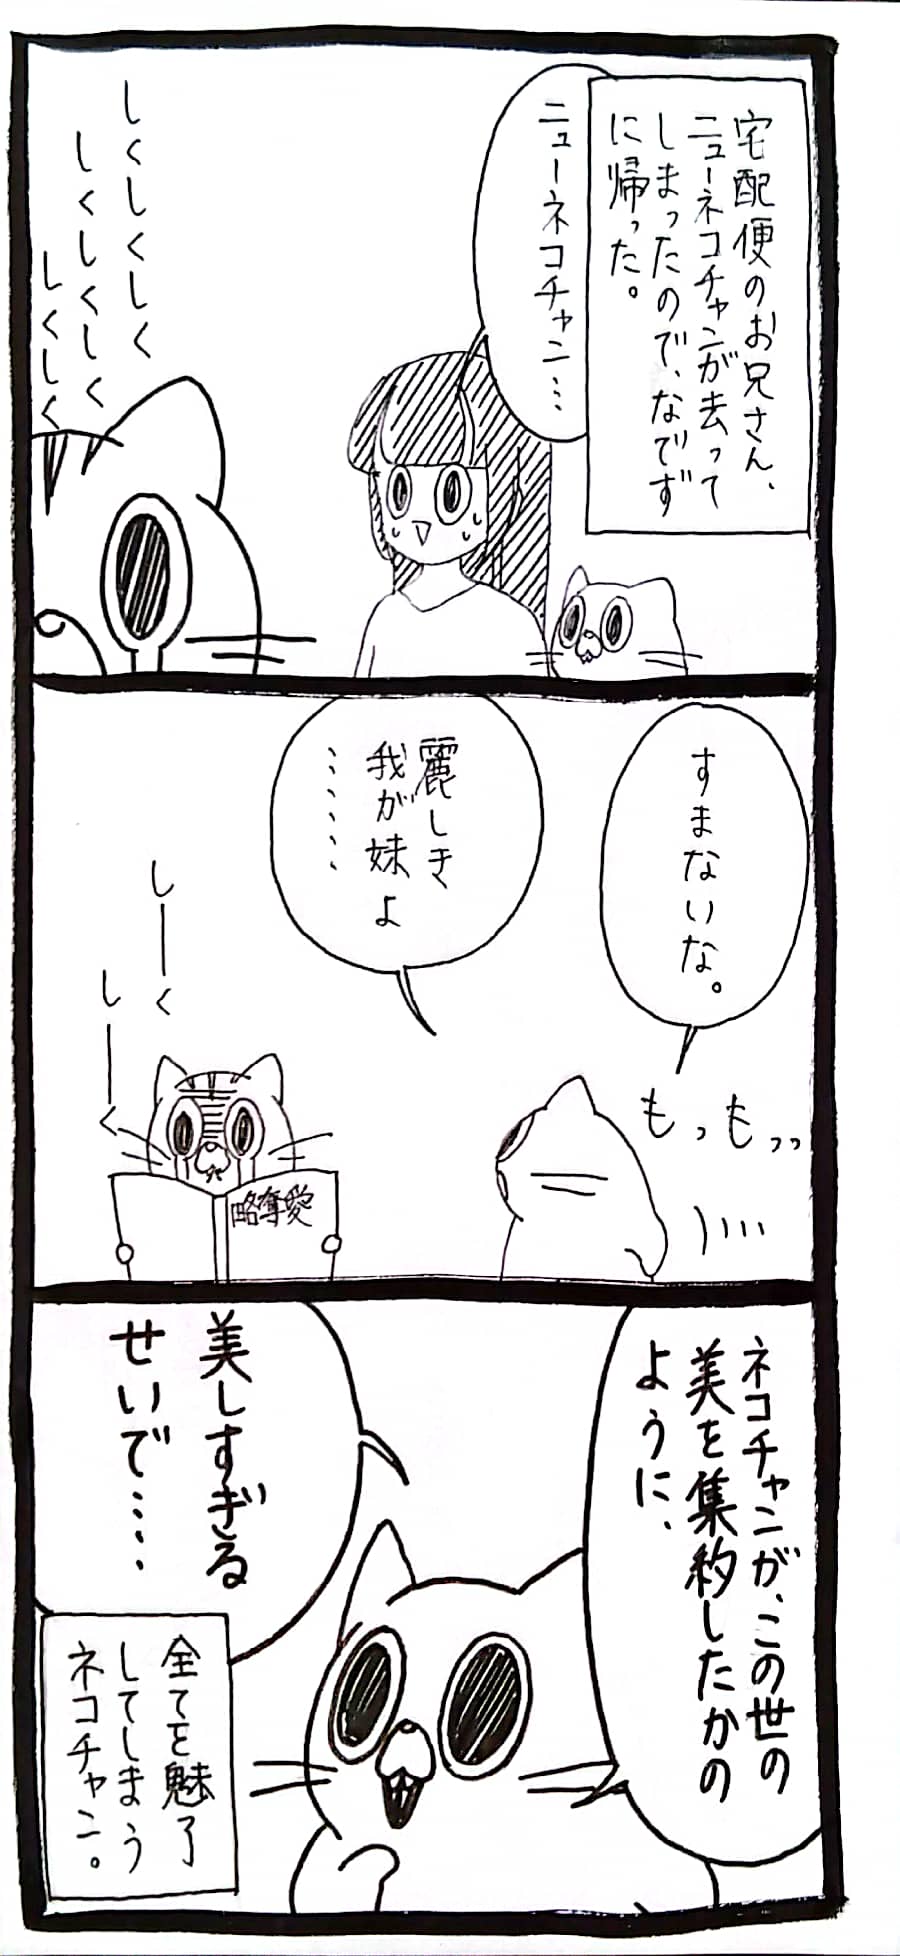 宅配便のお兄さん、
ニューネコチャンが去って
しまったので、なでず
に帰った。
ニューネコチャン…
しくしくしく
しくしくしく
しくしく
すまないな。
麗しき
我が妹よ
……
もっもっっ
しーく
しーく
略奪愛
ネコチャンが、この世の
美を集約したかの
ように、
美しすぎる
せいで……
全てを魅了
してしまう
ネコチャン。